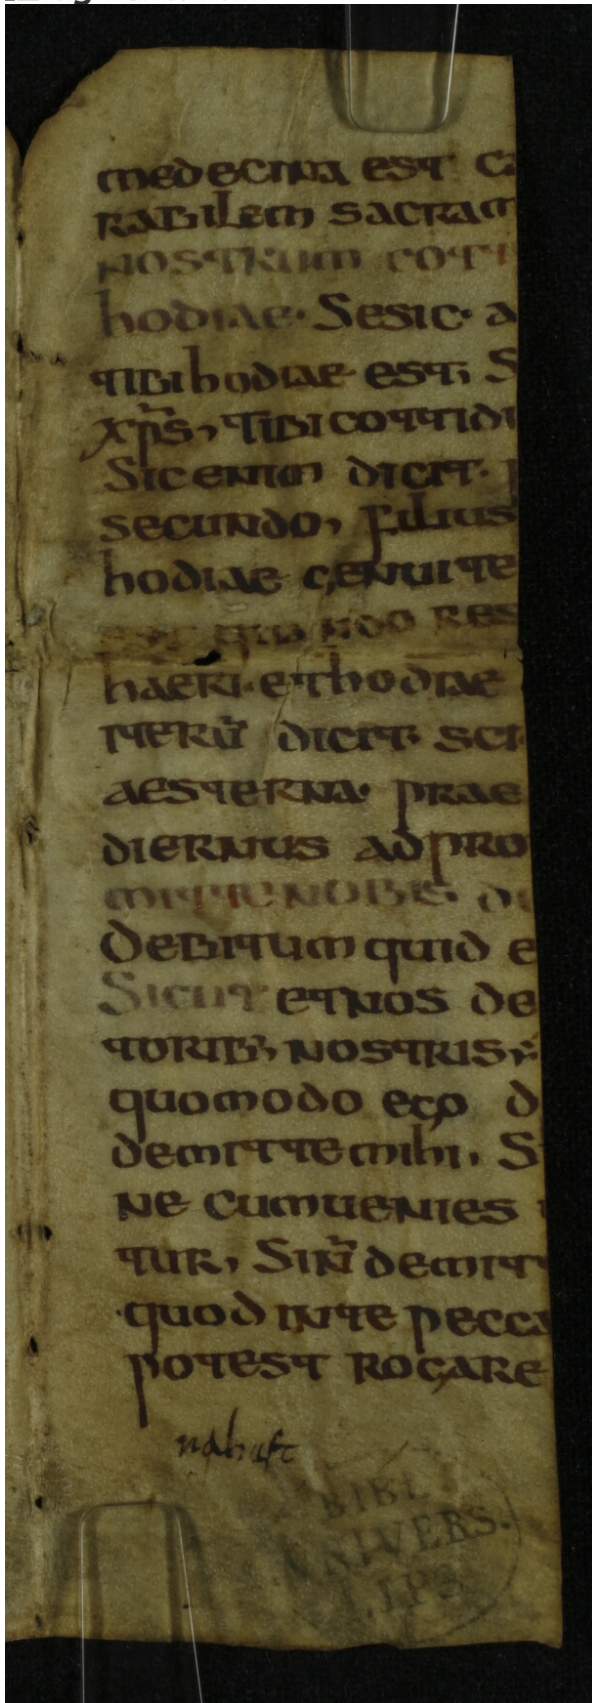 medecina est
rabilem sacram
nostrum coti
hodiae· Sesic· a
tibi hodiae est; S
xp̄s, tibi cottidi
Sic enim dicit·
secundo, filius
hodiae genui te
est quando res
haeri· et hodiae
iterū dicit·
aesterna· prae
diernus ad pro
mitte nobis· de
Debitum quid e
Sicut et nos de
torib; nostris;
quomodo ego d
demitte mihi, S
ne cum uenies
tur, Sin̄ demit
quod in te pecca
potest rogare
BIBL
UNIVERS.
LIPS